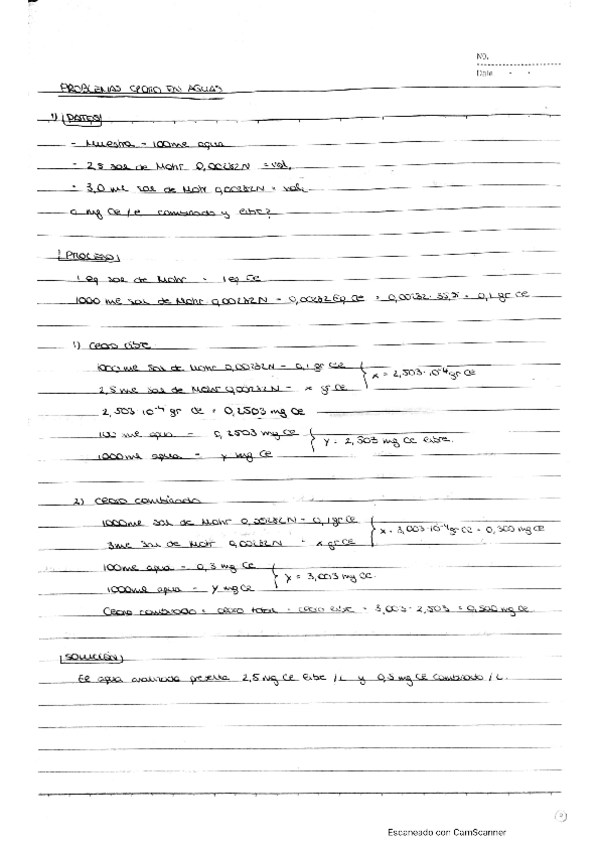 No.
Date
PROBLEMAS CLORO EN AGUAS
1) DATOS
- Muestra - 100ml agua
- 2,5 sal de Mohr 0,00282N = vol.
- 3,0 ml sal de Mohr 0,00282N = vol.
¿ mg Cl/l combinado y libre?
PROCESO
1 eq sal de Mohr - 1 eq Cl
1000 ml sal de Mohr 0,00282N - 0,00282 Eq Cl = 0,00282 · 35,5 = 0,1 gr Cl
1) Cloro libre
1000 ml sal de Mohr 0,00282N - 0,1 gr Cl
x = 2,503·10⁻⁴ gr Cl
2,5 ml sal de Mohr 0,00282N - x gr Cl
2,503·10⁻⁴ gr Cl = 0,2503 mg Cl
100 ml agua - 0,2503 mg Cl
y = 2,503 mg Cl libre.
1000ml agua - y mg Cl
2) Cloro combinado
1000ml sal de Mohr 0,00282N - 0,1 gr Cl
x = 3,003·10⁻⁴ gr Cl = 0,300 mg Cl
3ml sal de Mohr 0,00282N - x gr Cl
100ml agua - 0,3 mg Cl
y = 3,003 mg Cl.
1000ml agua - y mg Cl
Cloro combinado = cloro total - cloro libre = 3,003 - 2,503 = 0,500 mg Cl
SOLUCIÓN
El agua analizada presenta 2,5 mg Cl libre /L y 0,5 mg Cl combinado /L.
Escaneado con CamScanner